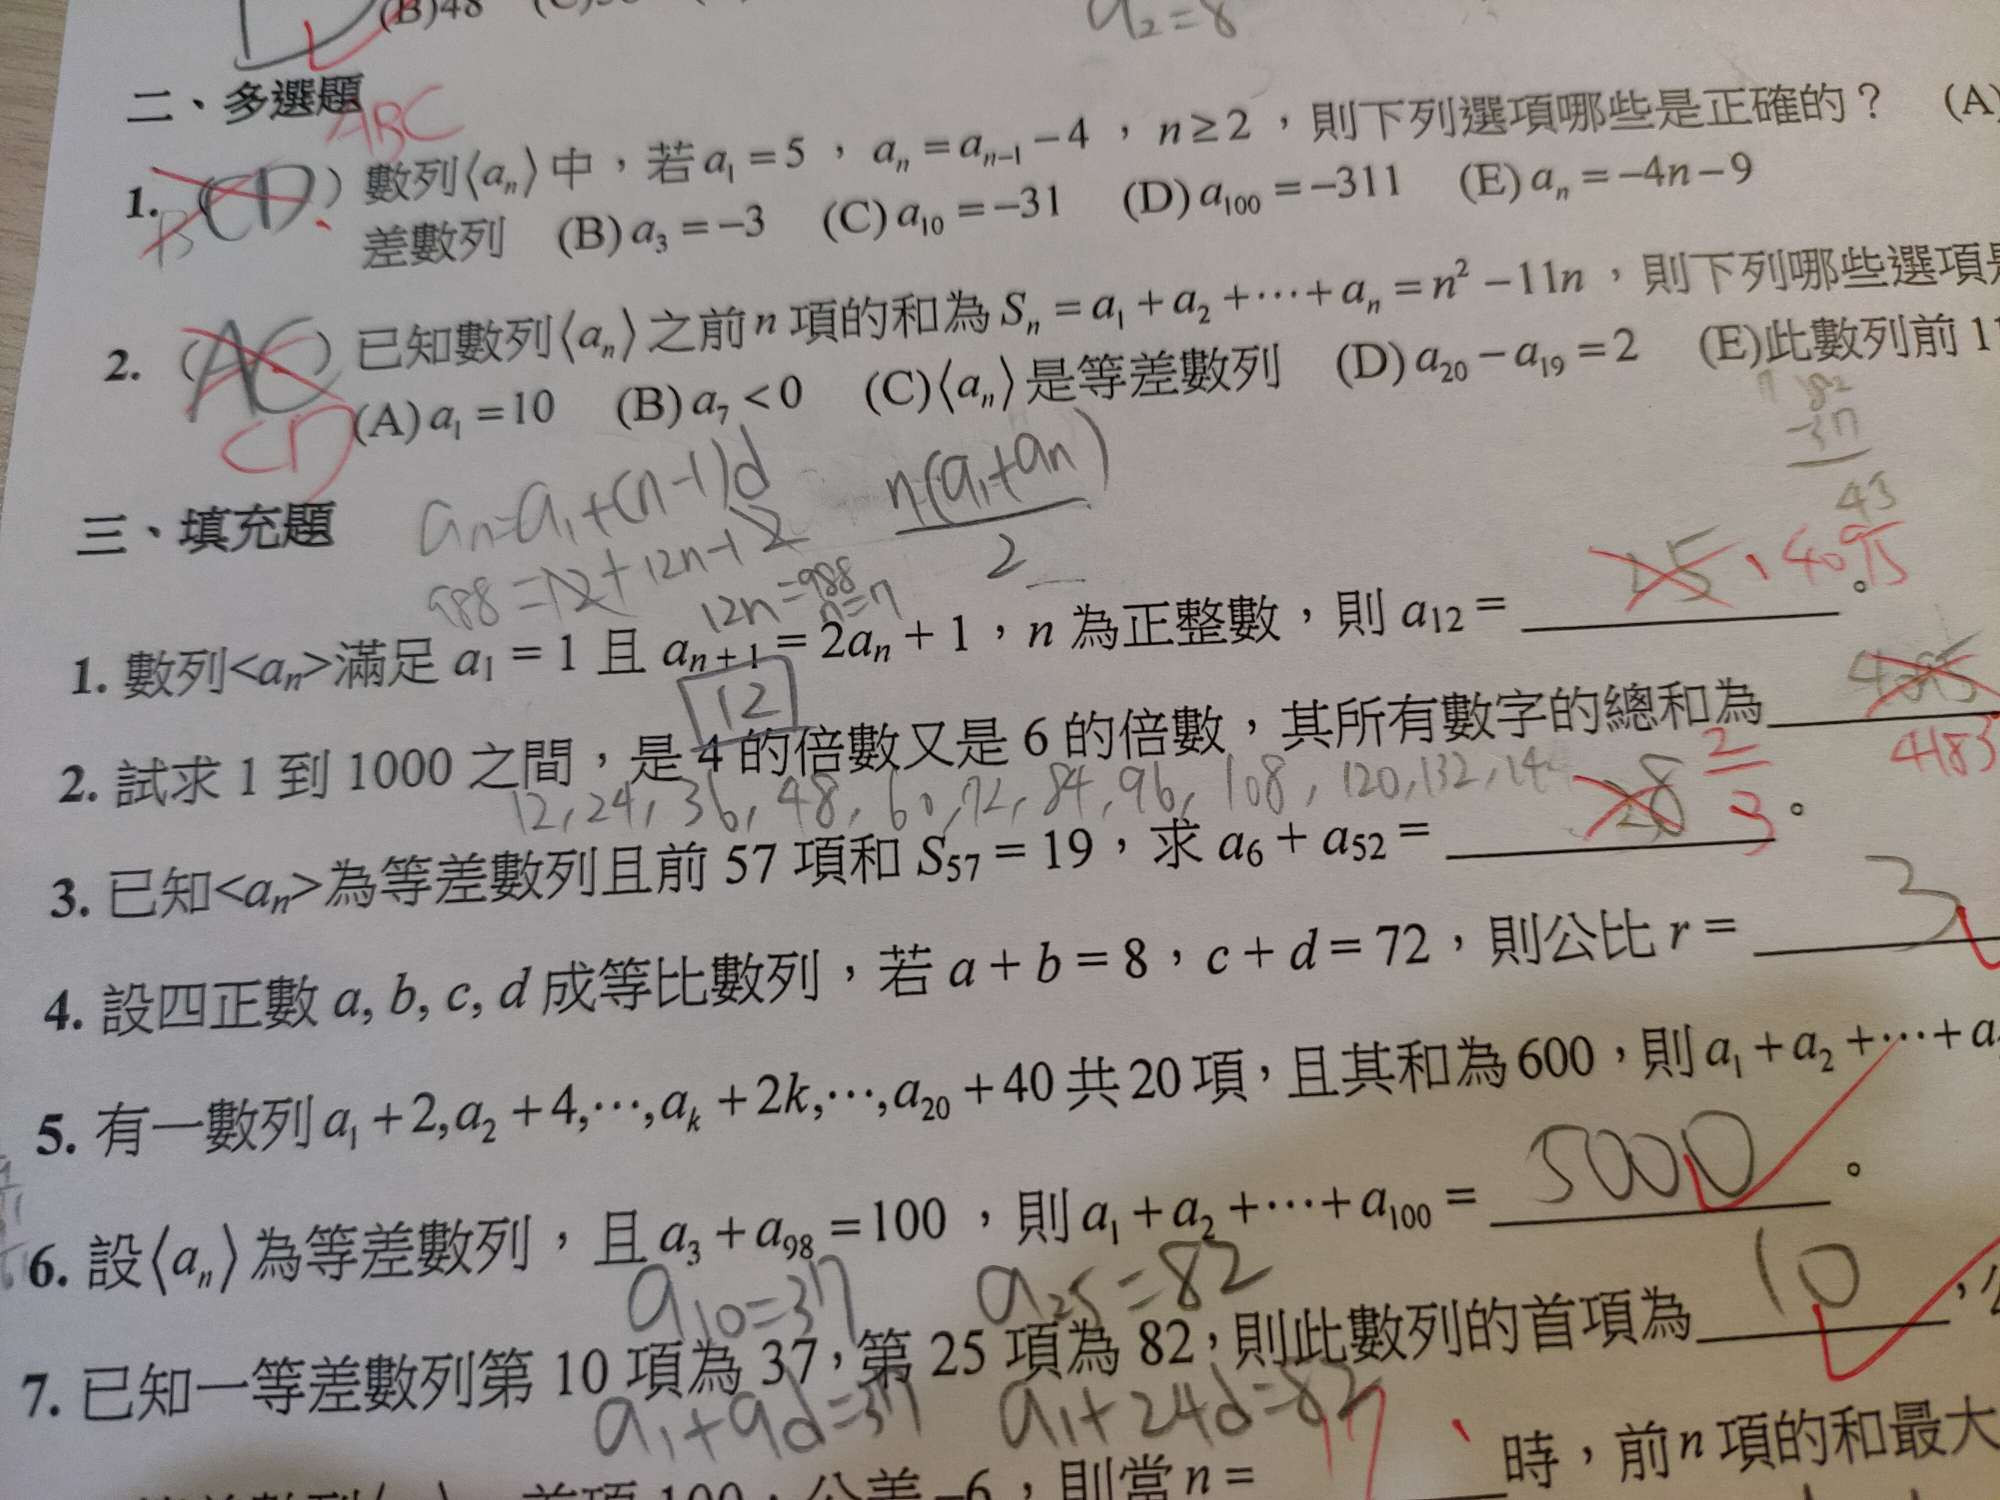 (B)48
a₂=8
二、多選題
ABC
1. (CD) 數列⟨aₙ⟩中，若a₁=5，aₙ=aₙ₋₁−4，n≥2，則下列選項哪些是正確的？ (A)
B
差數列 (B)a₃=−3 (C)a₁₀=−31 (D)a₁₀₀=−311 (E)aₙ=−4n−9
2. (AC) 已知數列⟨aₙ⟩之前n項的和為Sₙ=a₁+a₂+⋯+aₙ=n²−11n，則下列哪些選項
(A)a₁=10 (B)a₇<0 (C)⟨aₙ⟩是等差數列 (D)a₂₀−a₁₉=2 (E)此數列前
CD
82
−37
43
aₙ=a₁+(n−1)d
n(a₁+aₙ)
2
三、填充題
988=12+12n−12
12n=988
n=7
1. 數列<aₙ>滿足 a₁ = 1 且 aₙ₊₁ = 2aₙ + 1，n 為正整數，則 a₁₂ = 15 4095。
12
2. 試求 1 到 1000 之間，是 4 的倍數又是 6 的倍數，其所有數字的總和為
4183
12,24,36,48,60,72,84,96,108,120,132,
3. 已知<aₙ>為等差數列且前 57 項和 S₅₇ = 19，求 a₆ + a₅₂ = 38 2/3。
4. 設四正數 a, b, c, d 成等比數列，若 a + b = 8，c + d = 72，則公比 r = 3
5. 有一數列a₁+2,a₂+4,⋯,aₖ+2k,⋯,a₂₀+40共20項，且其和為600，則a₁+a₂+⋯+a
6. 設⟨aₙ⟩為等差數列，且a₃+a₉₈=100，則a₁+a₂+⋯+a₁₀₀= 5000。
a₁₀=37 a₂₅=82
7. 已知一等差數列第 10 項為 37，第 25 項為 82，則此數列的首項為 10，
a₁+9d=37 a₁+24d=82
首項 100，公差−6，則當n= 17 時，前n項的和最大